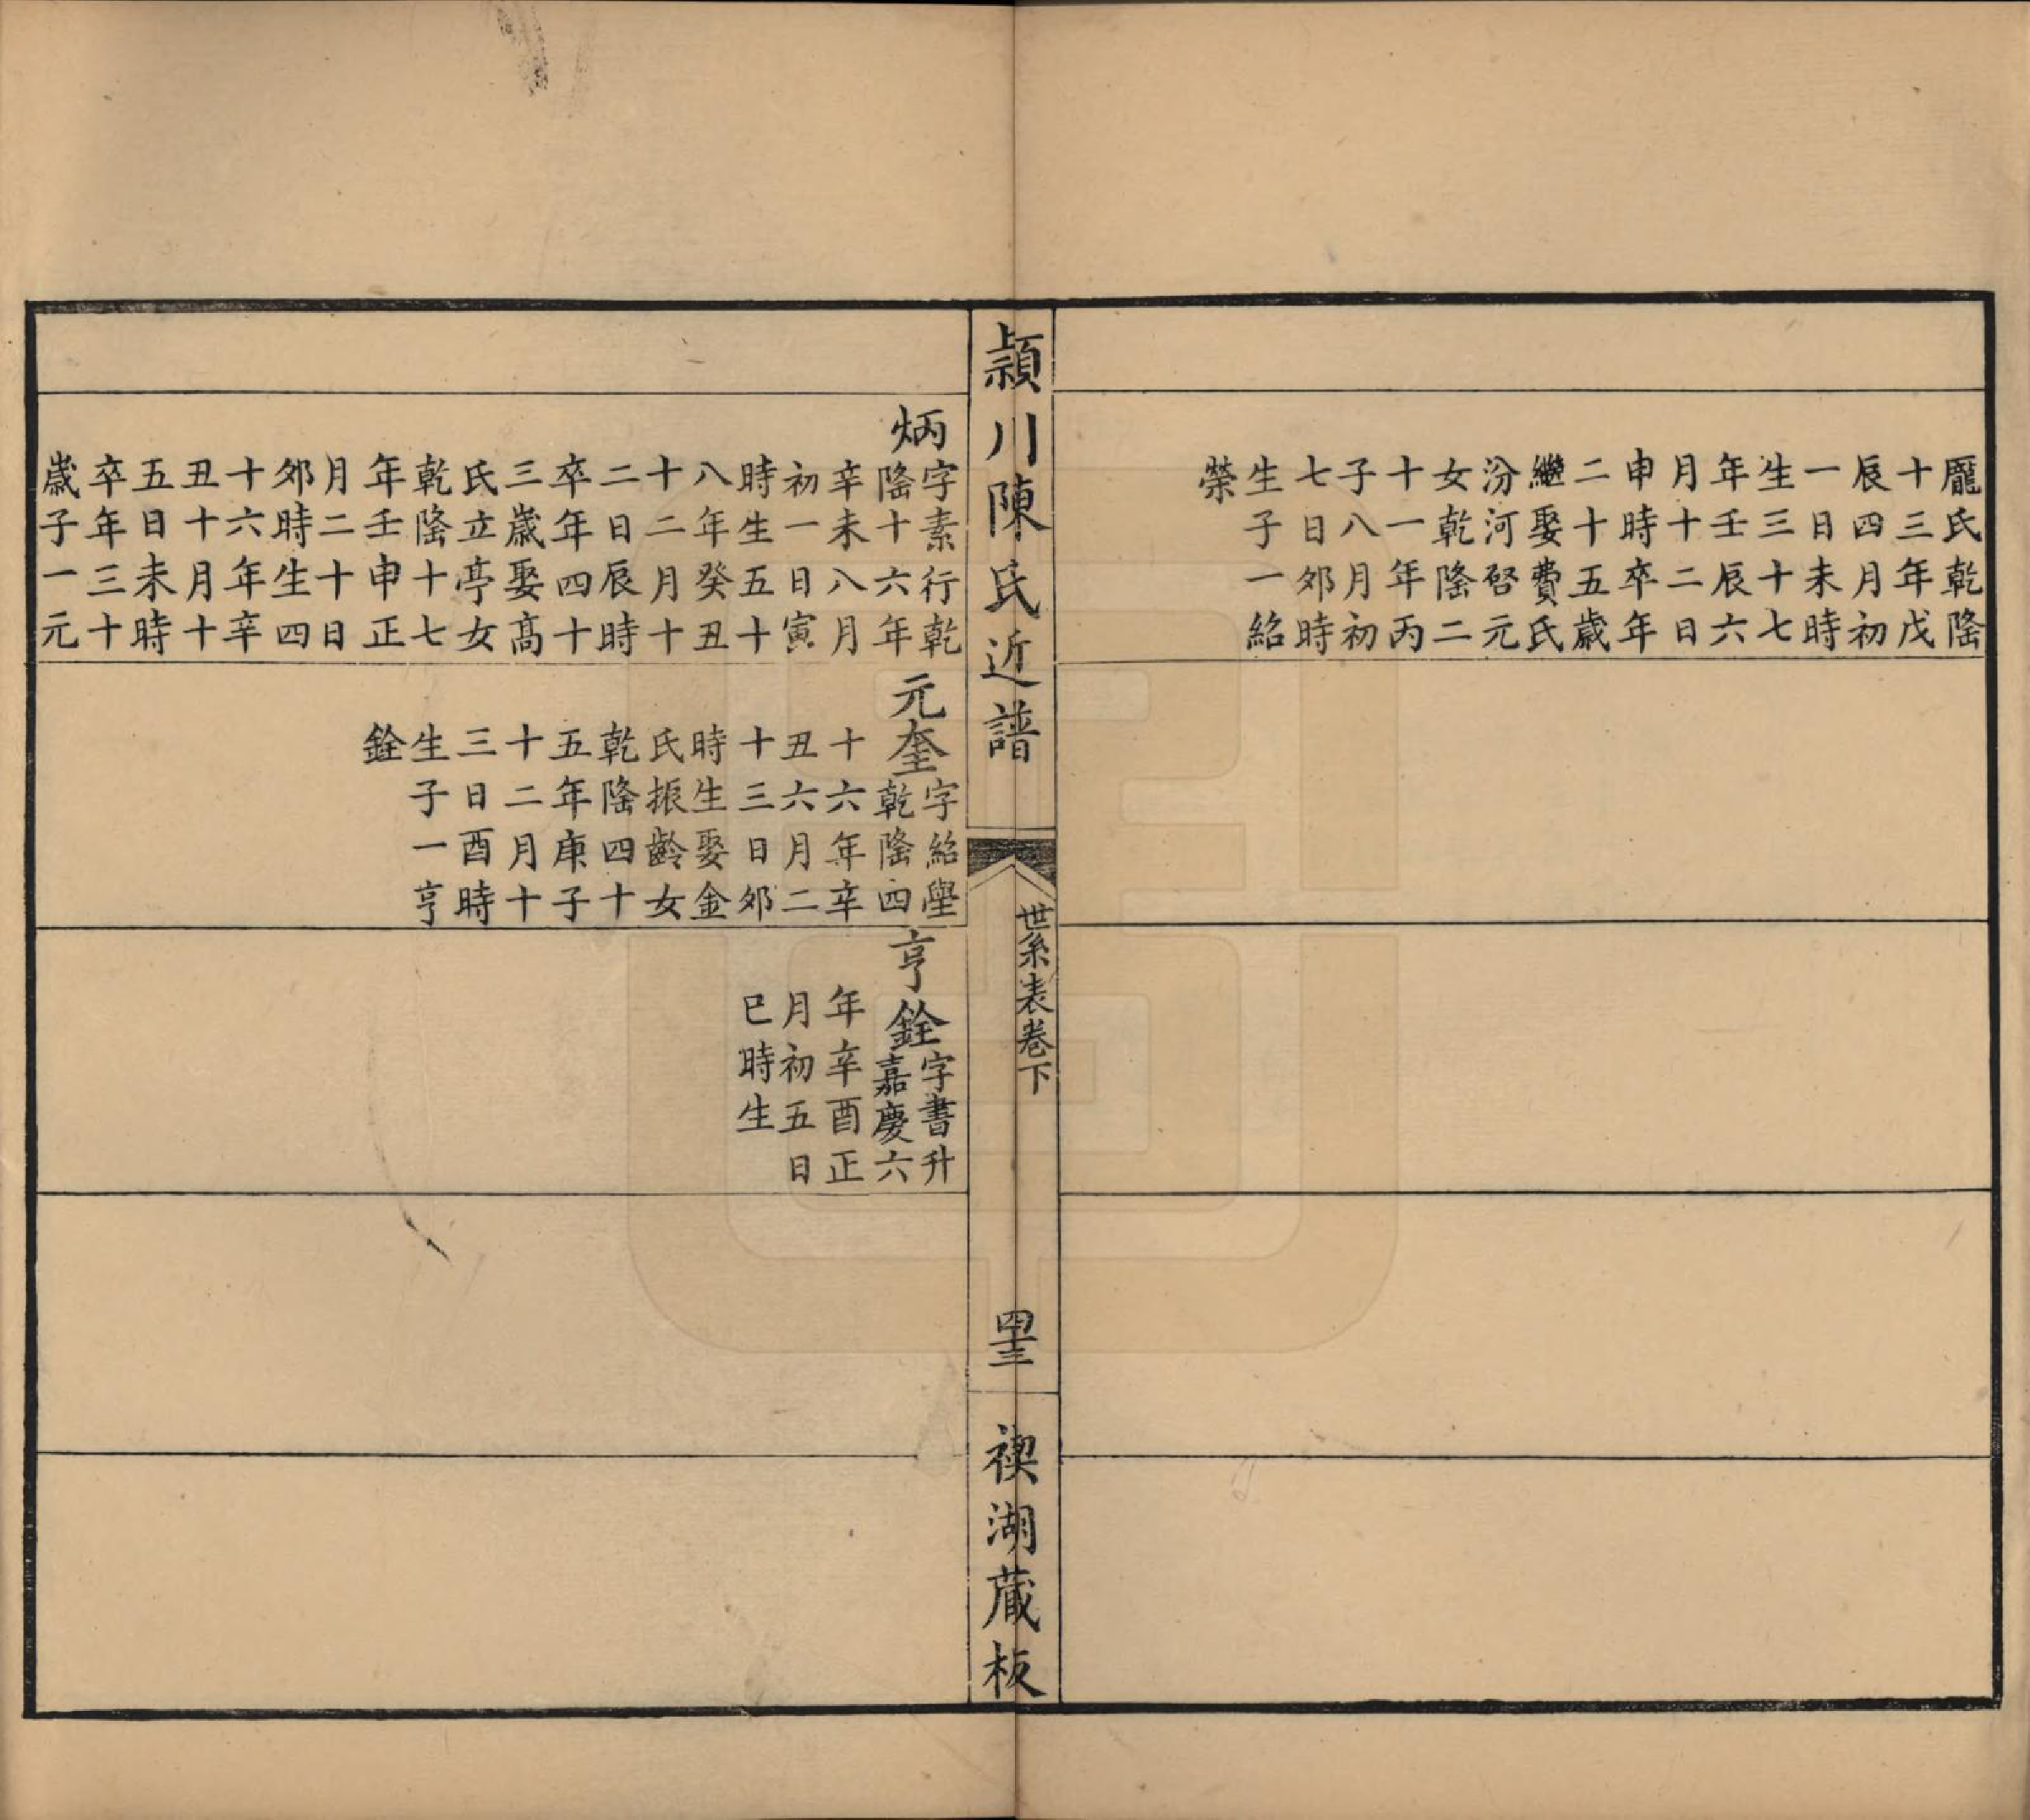 龎氏乾隆
十三年戊
辰四月初
一日未時
生三十七
年壬辰六
月十二日
申時卒年
二十五歲
繼娶費氏
汾河啓元
女乾隆二
十一年丙
子八月初
七日郊時
生子一紹
榮
頴川陳氏近譜
世系表卷下
四十三
禊湖蔵板
炳
字素行乾
隆十六年
辛未八月
初一日寅
時生五十
八年癸丑
十二月十
二日辰時
卒年四十
三歲娶高
氏立亭女
乾隆十七
年壬申正
月二十日
郊時生四
十六年辛
丑十月十
五日未時
卒年三十
歲子一元
元奎
字紹壆
乾隆四
十六年辛
丑六月二
十三日郊
時生娶金
氏振齡女
乾隆四十
五年庚子
十二月十
三日酉時
生子一亨
銓
亨銓
字書升
嘉慶六
年辛酉正
月初五日
巳時生